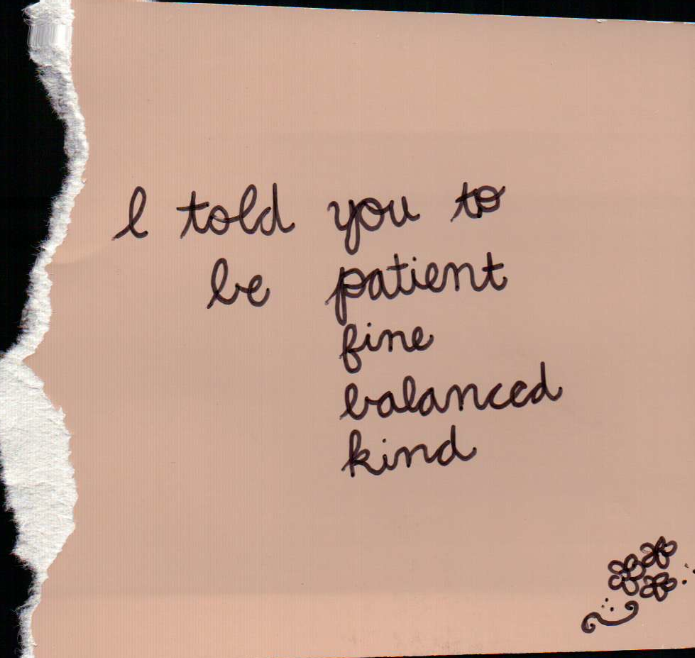 I told you to
be patient
fine
balanced
kind